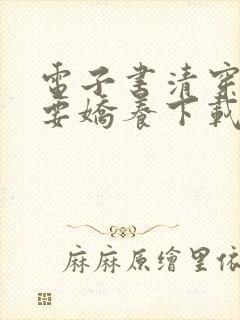 電子書清穿
要嬌養下載
麻麻原繪里依